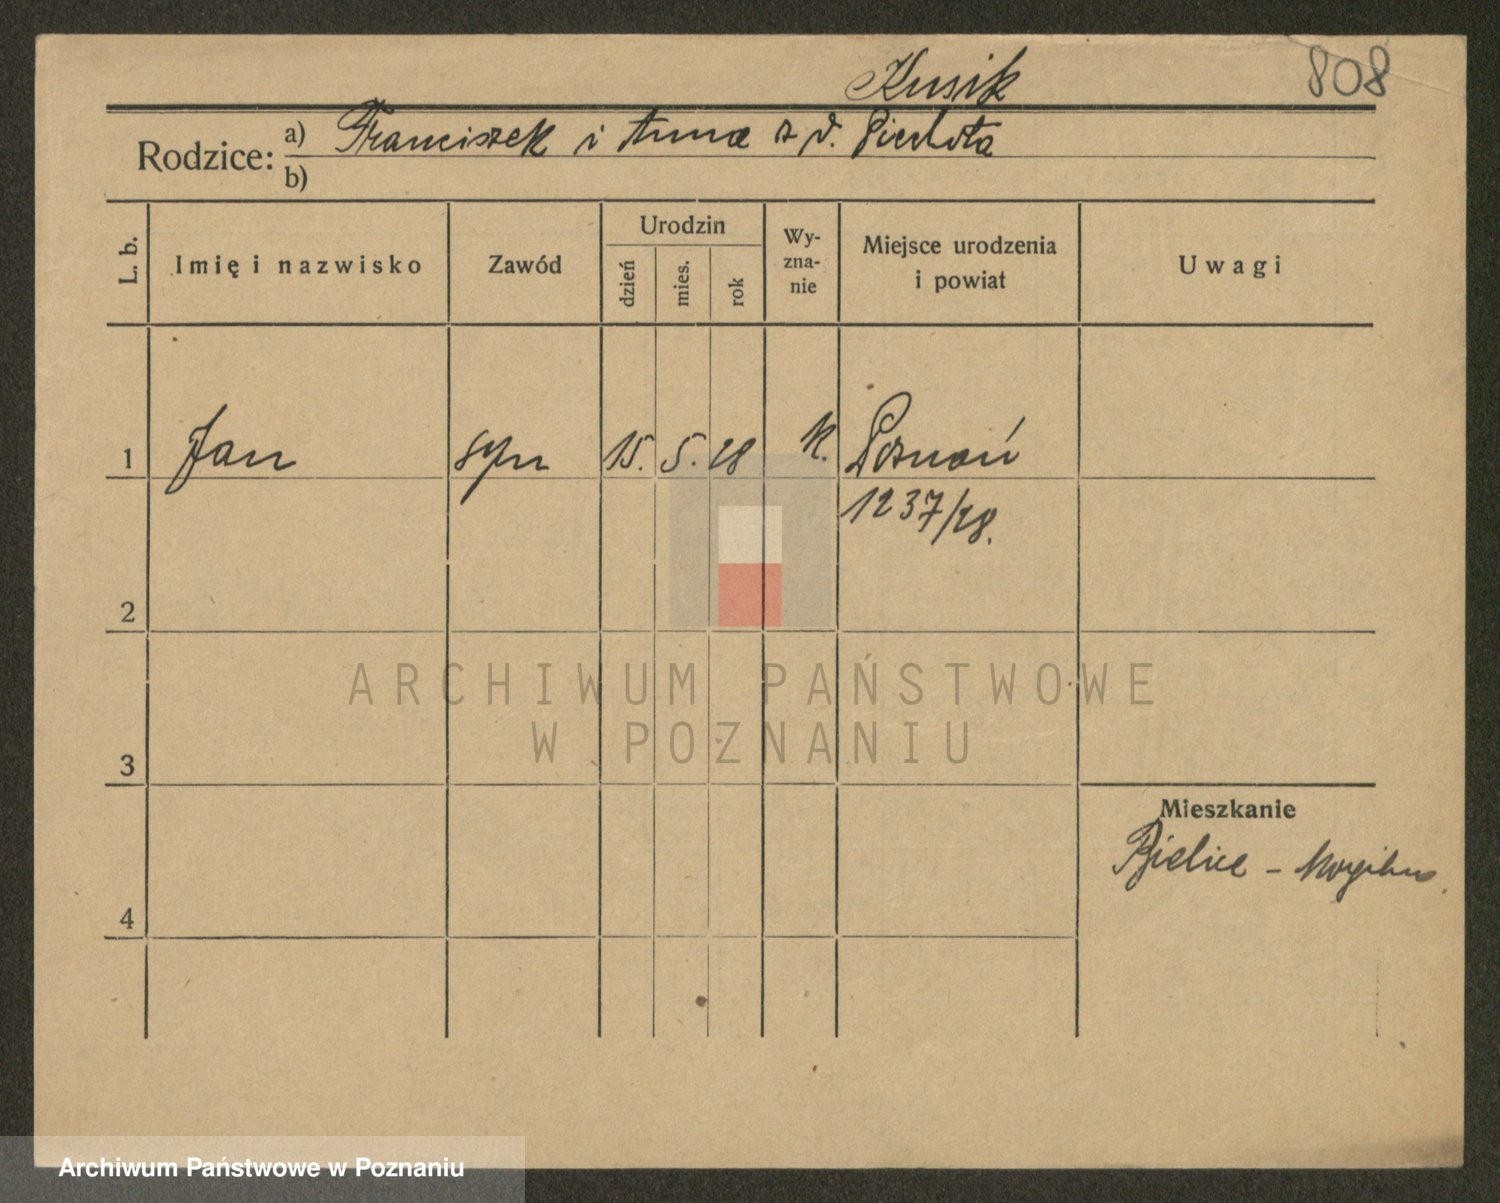 Kusik
808
Rodzice: a) Franciszek i Anna z d. Piechota
b)
L. b. Imię i nazwisko Zawód Urodzin dzień mies. rok Wyznanie Miejsce urodzenia i powiat Uwagi
1 Jan syn 15. 5. 28 k. Poznań
1237/28.
2
ARCHIWUM PAŃSTWOWE
W POZNANIU
3
Mieszkanie
Bielice - Mogilno
4
Archiwum Państwowe w Poznaniu